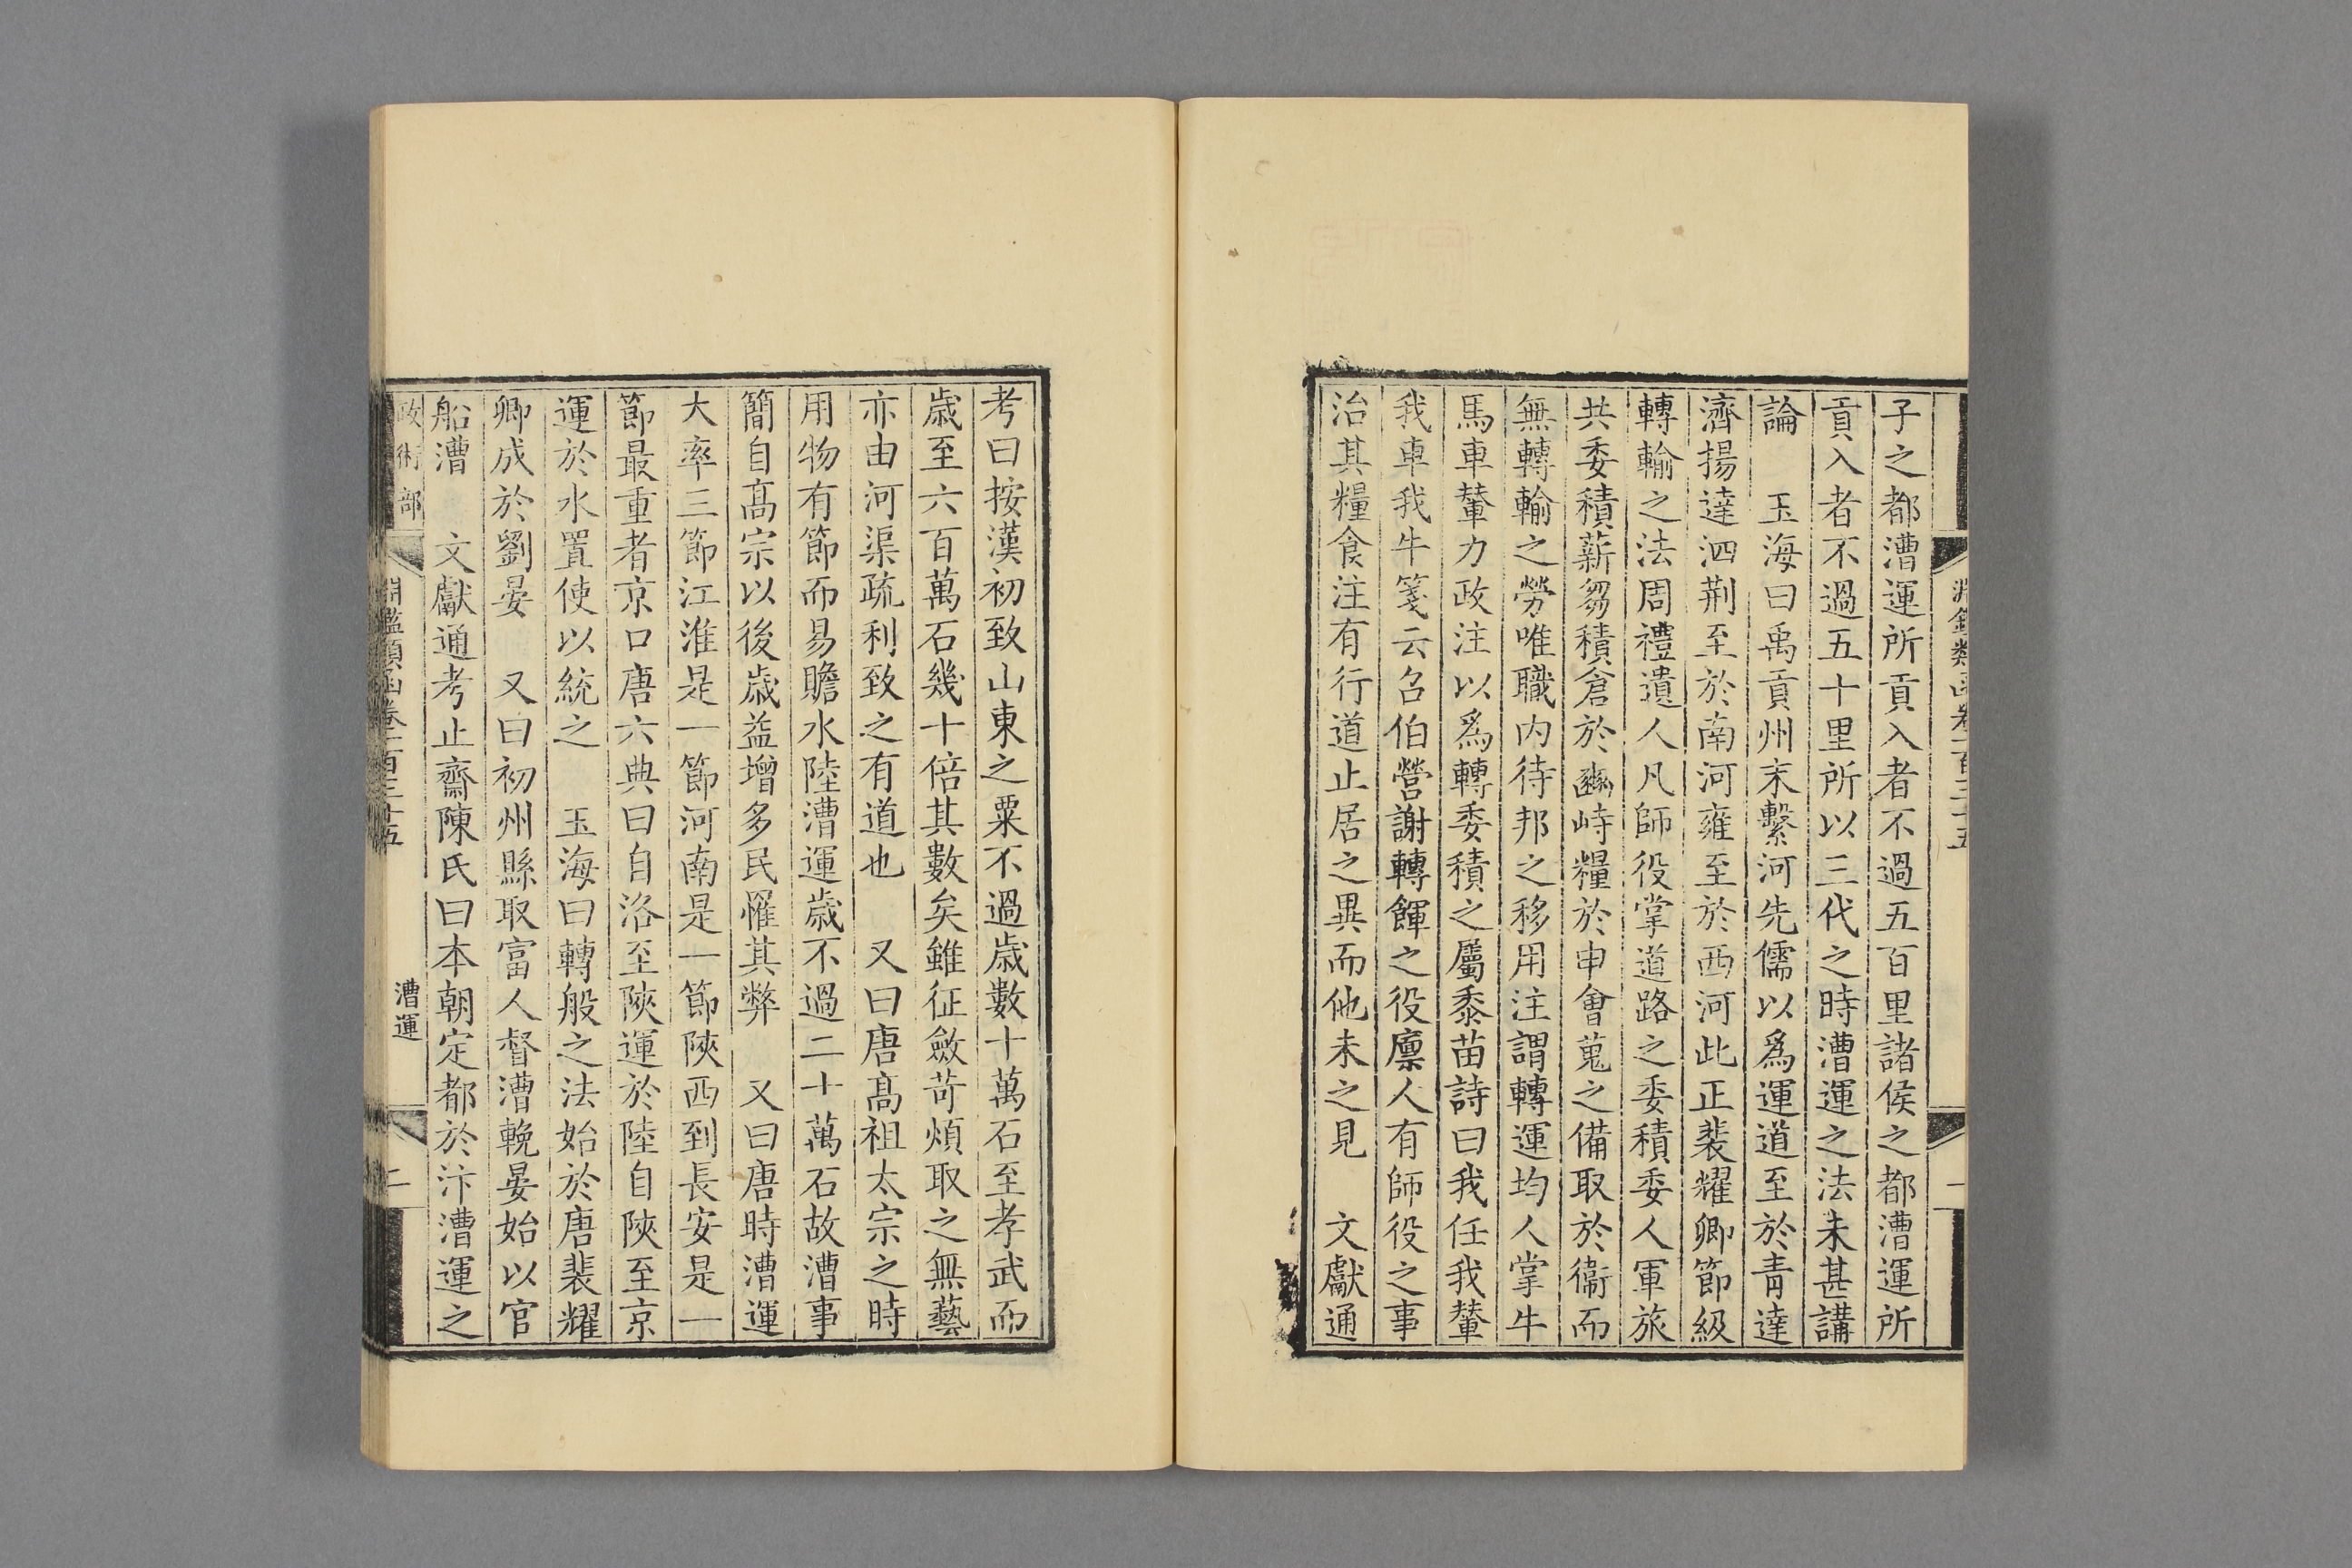 淵鑑類函卷一百三十五
一
子之都漕運所貢入者不過五百里諸侯之都漕運所
貢入者不過五十里所以三代之時漕運之法未甚講
論　玉海曰禹貢州末繫河先儒以爲運道至於青達
濟揚達泗荆至於南河雍至於西河此正裴耀卿節級
轉輸之法周禮遺人凡師役掌道路之委積委人軍旅
共委積薪芻積倉於豳峙糧於申會蒐之備取於衞而
無轉輸之勞唯職内待邦之移用注謂轉運均人掌牛
馬車輦力政注以爲轉委積之屬黍苗詩曰我任我輦
我車我牛箋云召伯營謝轉餫之役廩人有師役之事
治其糧食注有行道止居之異而他未之見　文獻通
考曰按漢初致山東之粟不過歳數十萬石至孝武而
歳至六百萬石幾十倍其數矣雖征斂苛煩取之無藝
亦由河渠疏利致之有道也　又曰唐髙祖太宗之時
用物有節而易贍水陸漕運歳不過二十萬石故漕事
簡自髙宗以後歳益增多民罹其弊　又曰唐時漕運
大率三節江淮是一節河南是一節陜西到長安是一
節最重者京口唐六典曰自洛至陜運於陸自陜至京
運於水置使以統之　玉海曰轉般之法始於唐裴耀
卿成於劉晏　又曰初州縣取富人督漕輓晏始以官
船漕　文獻通考止齋陳氏曰本朝定都於汴漕運之
政術部
淵鑑類函卷一百三十五
漕運
二